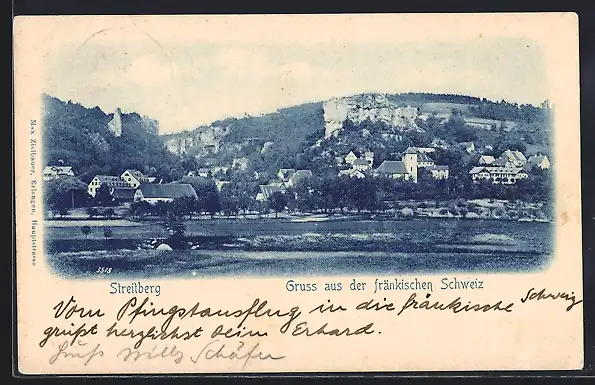 Max Zielbauer, Erlangen, Hauptstrasse
5518
Streitberg
Gruss aus der fränkischen Schweiz
Vom Pfingstausflug in die fränkische Schweiz
grüßt herzlichst beim Erhard.
Willy Schäfer